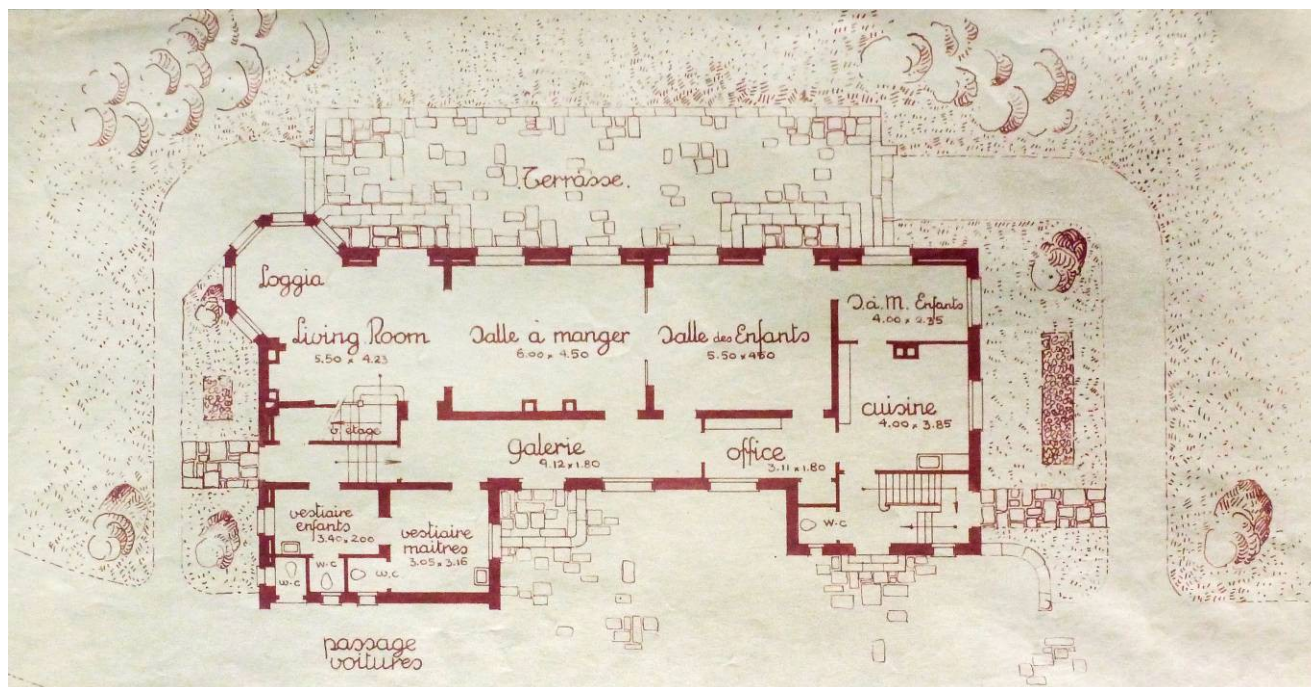 Terrasse.
Loggia
Living Room
5.50 x 4.23
Salle à manger
6.00 x 4.50
Salle des Enfants
5.50 x 4.50
S.à.M. Enfants
4.00 x 2.35
cuisine
4.00 x 3.85
étage
galerie
9.12 x 1.80
office
3.11 x 1.80
vestiaire
enfants
3.40 x 2.00
vestiaire
maitres
3.05 x 3.16
w.c
w.c
w.c
w.c
passage
voitures